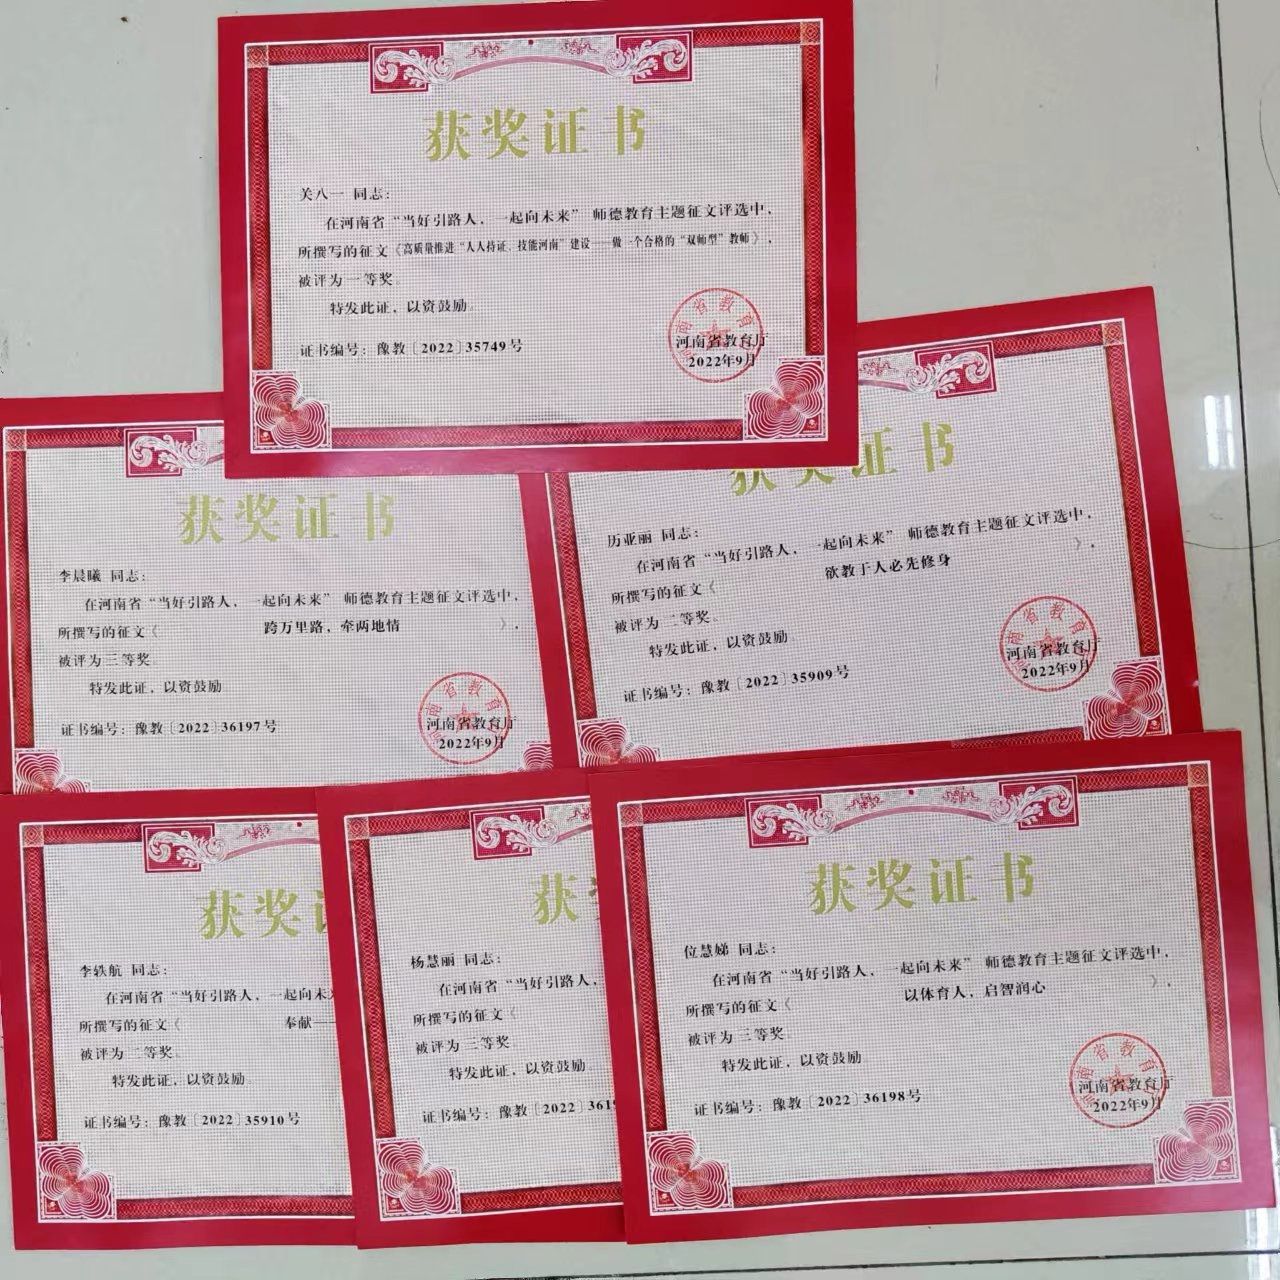 获奖证书
关八一 同志：
在河南省“当好引路人，一起向未来”师德教育主题征文评选中，
所撰写的征文《高质量推进“人人持证、技能河南”建设——做一个合格的“双师型”教师》，
被评为一等奖。
特发此证，以资鼓励。
证书编号：豫教〔2022〕35749号
河南省教育厅
2022年9月
获奖证书
李晨曦 同志：
在河南省“当好引路人，一起向未来”师德教育主题征文评选中，
所撰写的征文《跨万里路，牵两地情》，
被评为三等奖。
特发此证，以资鼓励
证书编号：豫教〔2022〕36197号
河南省教育厅
2022年9月
获奖证书
历亚丽 同志：
在河南省“当好引路人，一起向未来”师德教育主题征文评选中，
所撰写的征文《欲教于人必先修身》，
被评为二等奖。
特发此证，以资鼓励
证书编号：豫教〔2022〕35909号
河南省教育厅
2022年9月
获奖
李轶航 同志：
在河南省“当好引路人，一起向未
所撰写的征文《奉献—
被评为二等奖。
特发此证，以资鼓励。
证书编号：豫教〔2022〕35910号
获
杨慧丽 同志：
在河南省“当好引路人，
所撰写的征文《
被评为三等奖
特发此证，以资鼓励。
证书编号：豫教〔2022〕361
获奖证书
位慧娣 同志：
在河南省“当好引路人，一起向未来”师德教育主题征文评选中，
所撰写的征文《以体育人，启智润心》，
被评为三等奖。
特发此证，以资鼓励
证书编号：豫教〔2022〕36198号
河南省教育厅
2022年9月